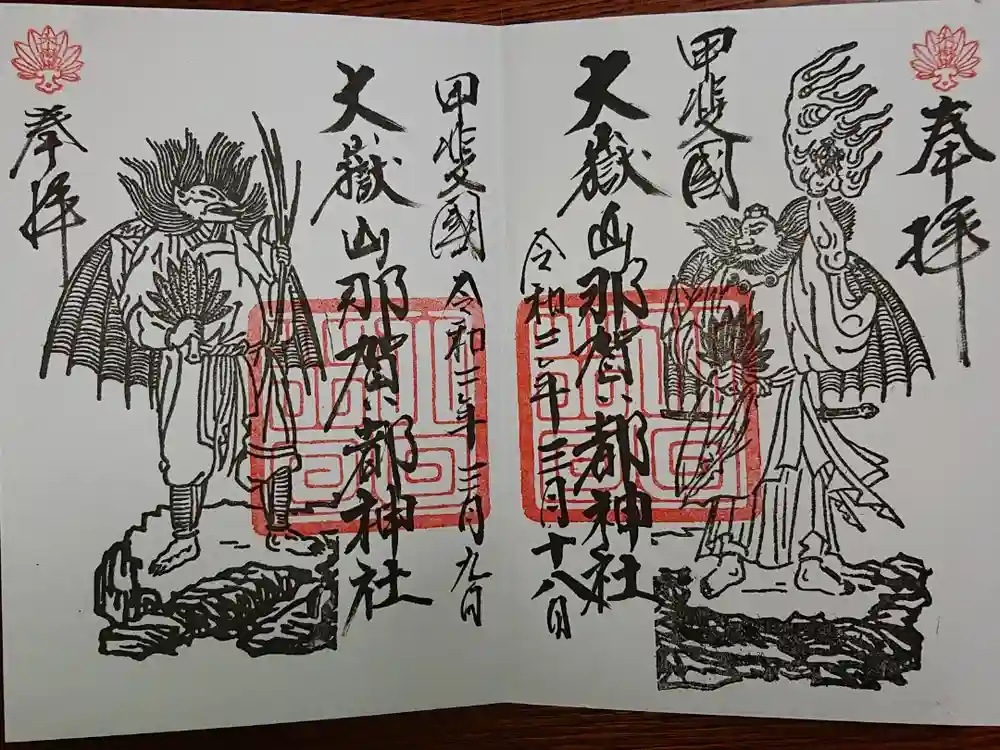 奉拝
甲斐國
大嶽山那賀都神社
令和二年三月十八日
甲斐國
大嶽山那賀都神社
令和二年三月九日
奉拝